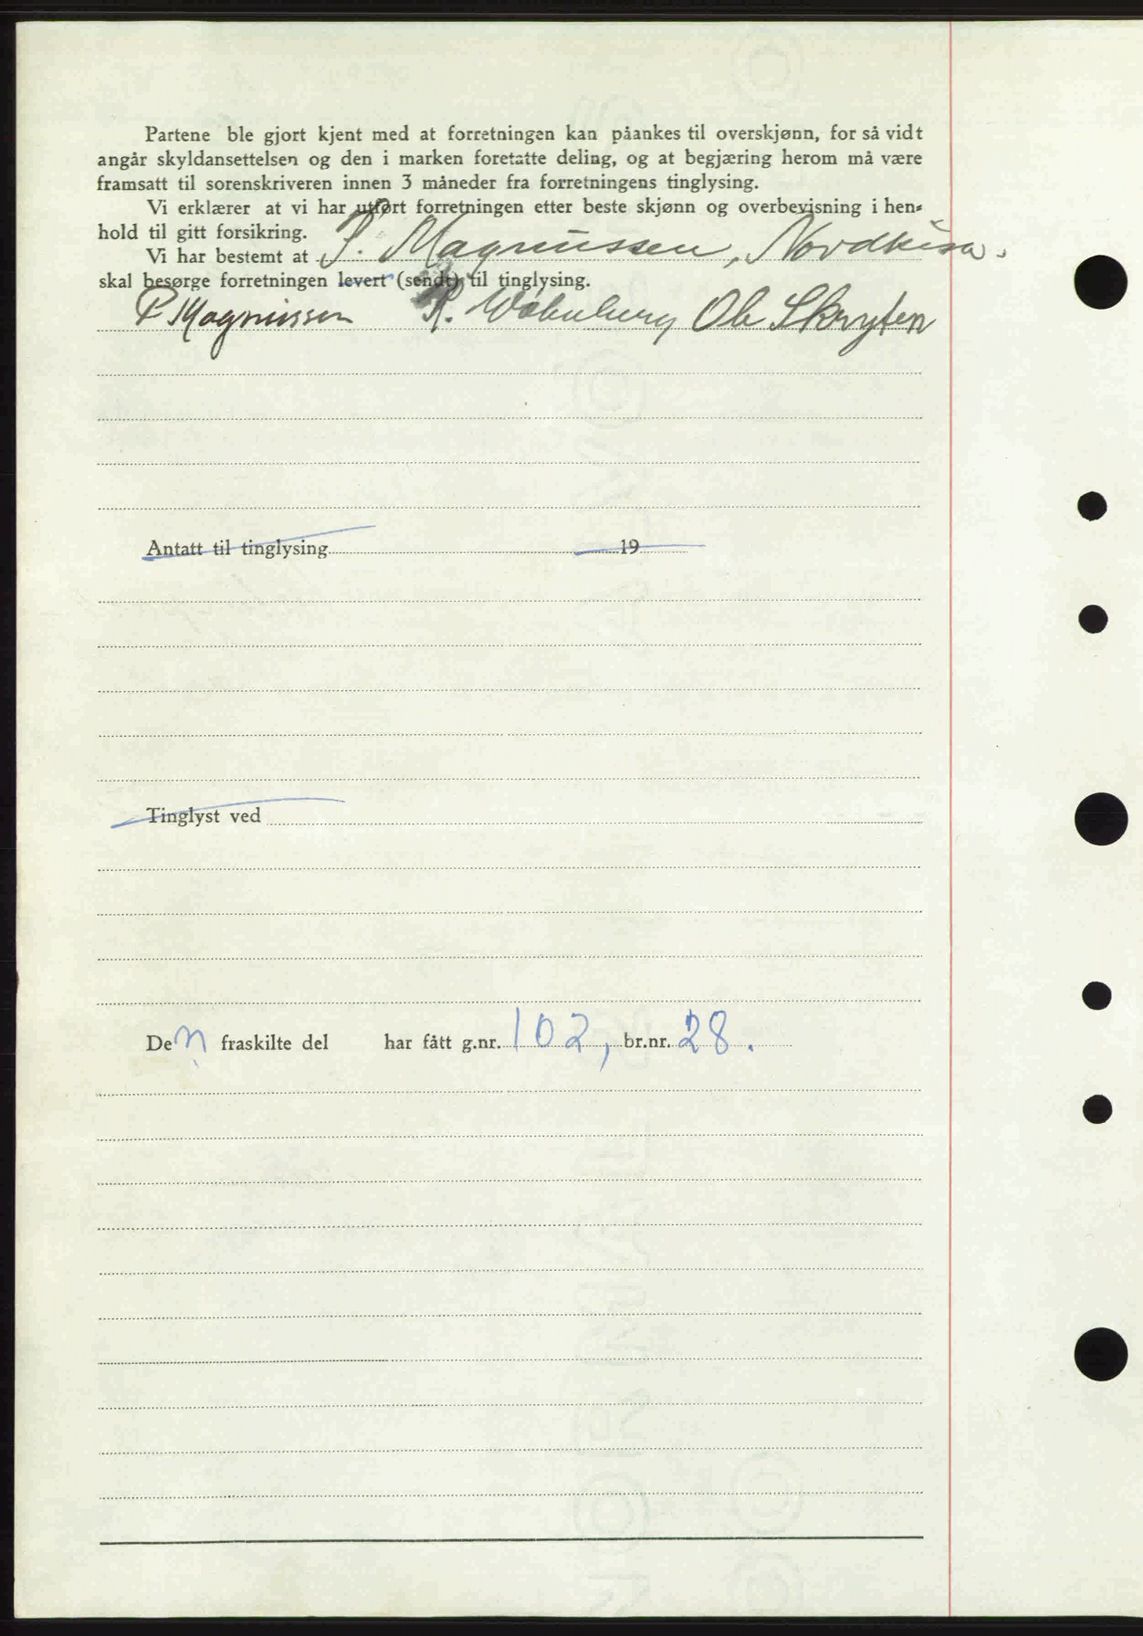 Partene ble gjort kjent med at forretningen kan påankes til overskjønn, for så vidt
angår skyldansettelsen og den i marken foretatte deling, og at begjæring herom må være
framsatt til sorenskriveren innen 3 måneder fra forretningens tinglysing.
Vi erklærer at vi har utført forretningen etter beste skjønn og overbevisning i hen-
hold til gitt forsikring.
Vi har bestemt at P. Magnussen, Nordkisa.
skal besørge forretningen levert (sendt) til tinglysing.
P. Magnussen R. Ole Skryten
Antatt til tinglysing 19
Tinglyst ved
Den fraskilte del har fått g.nr. 102, br.nr. 28.